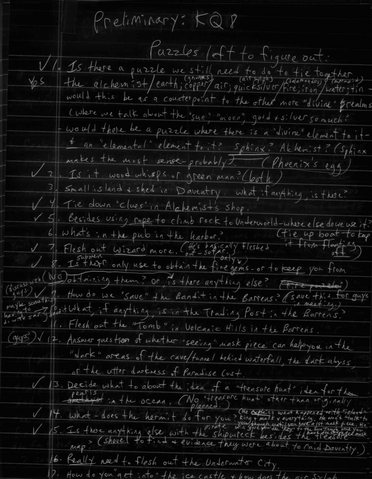 Preliminary: KQ 8
Puzzles left to figure out:
✓ 1. Is there a puzzle we still need to do to tie together
yes the alchemist/earth, copper/air, quicksilver/fire, iron/water, tin -
would this be as a counterpoint to the other more "divine" realms
(where we talk about the "sun", "moon", gold & silver so much?
- would there be a puzzle where there is a "divine" element to it
& an "elemental" element to it? Sphinx? Alchemist? (Sphinx
makes the most sense probably) (Phoenix's egg)
✓ 2. Is it word whisps or green man? (both)
3. Small island & shed in Daventry - what if anything, is there?
✓ 4. Tie down "clues" in Alchemist's shop.
✓ 5. Besides using rope to climb rock to Underworld - where else do we use it?
6. What's in the pub in the harbor? (tie up boat to keep it from floating off)
✓ 7. Flesh out Wizard more. (he's basically fleshed out - so far)
✓ 8. Is there only use to obtain the fire gems - or to keep you from
(No) obtaining them? or is there anything else?
9. How do we "save" the Bandit in the Barrens? (save this for guys
What, if anything, is in the Trading Post in the Barrens?
Flesh out the "Tomb" in Volcanic Hills in the Barrens.
(guys) ✓ 12. Answer question of whether "seeing" mask piece can help you in the
"dark" areas of the cave/tunnel behind waterfall, the dark abyss
or the utter darkness of Paradise Lost.
✓ 13. Decide what to about the idea of a "treasure hunt" idea for them
in the ocean. (No "treasure hunt" other than originally planned)
✓ 14. What does the hermit do for you?
✓ 15. Is there anything else with the shipwreck besides the treasure
map? (shovel to find & evidence they were about to raid Daventry.)
16. Really need to flesh out the Underwater City.
17. How do you "get into" the ice castle & how does the